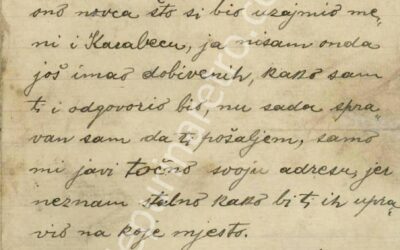 ono novca što si bio uzajmio me-
ni i Karabecu, ja nisam onda
još imao dobivenih, kako sam
ti i odgovorio bio, nu sada spra-
van sam da ti pošaljem, samo
mi javi točno svoju adresu, jer
neznam stalno kako bi ti ih upra-
vio na koje mjesto.